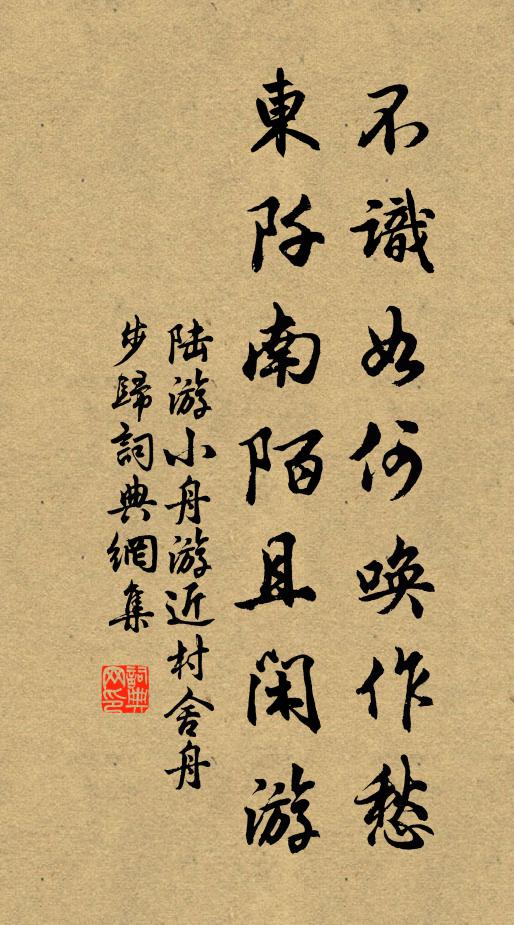 不識如何喚作愁
東阡南陌且閑游
陸游小舟游近村舍舟
步歸詞典網集
詞典網印